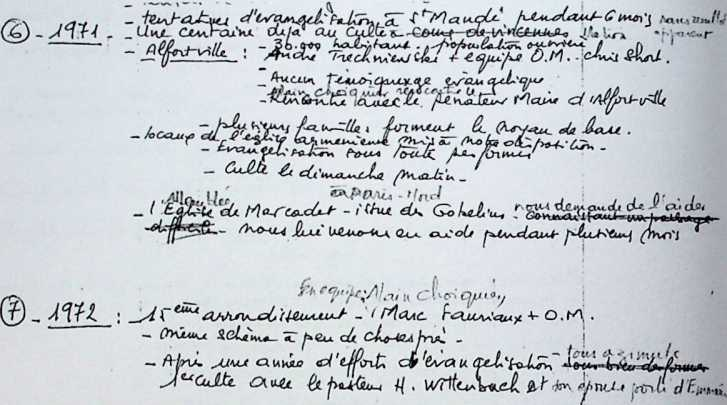 - tentatives d'évangélisation à St Mandé pendant 6 mois sans résultat apparent
⑥ - 1971 - Une centaine déjà au culte - Cours de Vincennes Nation
- Alfortville : - 30.000 habitants. population ouvrière
- André Trechniewski + équipe O.M. - chris Short.
- Aucun témoignage évangélique
Alain Choiquier rencontre le
- Rencontre avec le Sénateur Maire d'Alfortville
- plusieurs familles forment le noyau de base.
- locaux de l'église arménienne mis à notre disposition -
- Evangélisation sous toute ses formes
- Culte le dimanche matin -
Assemblée en Paris-Nord
- l'Eglise de Marcadet - issue des Gobelins - nous demande de l'aide connaissant un passage
difficile - nous lui venons en aide pendant plusieurs mois
En équipe: Alain Choiquier,
⑦ - 1972 : - 15ème arrondissement - Marc Fauriaux + O.M.
- même schéma à peu de choses près -
- Après une année d'efforts d'évangélisation - tous azimuts sous bien des formes
1er culte avec le pasteur H. Wittenbach et son épouse